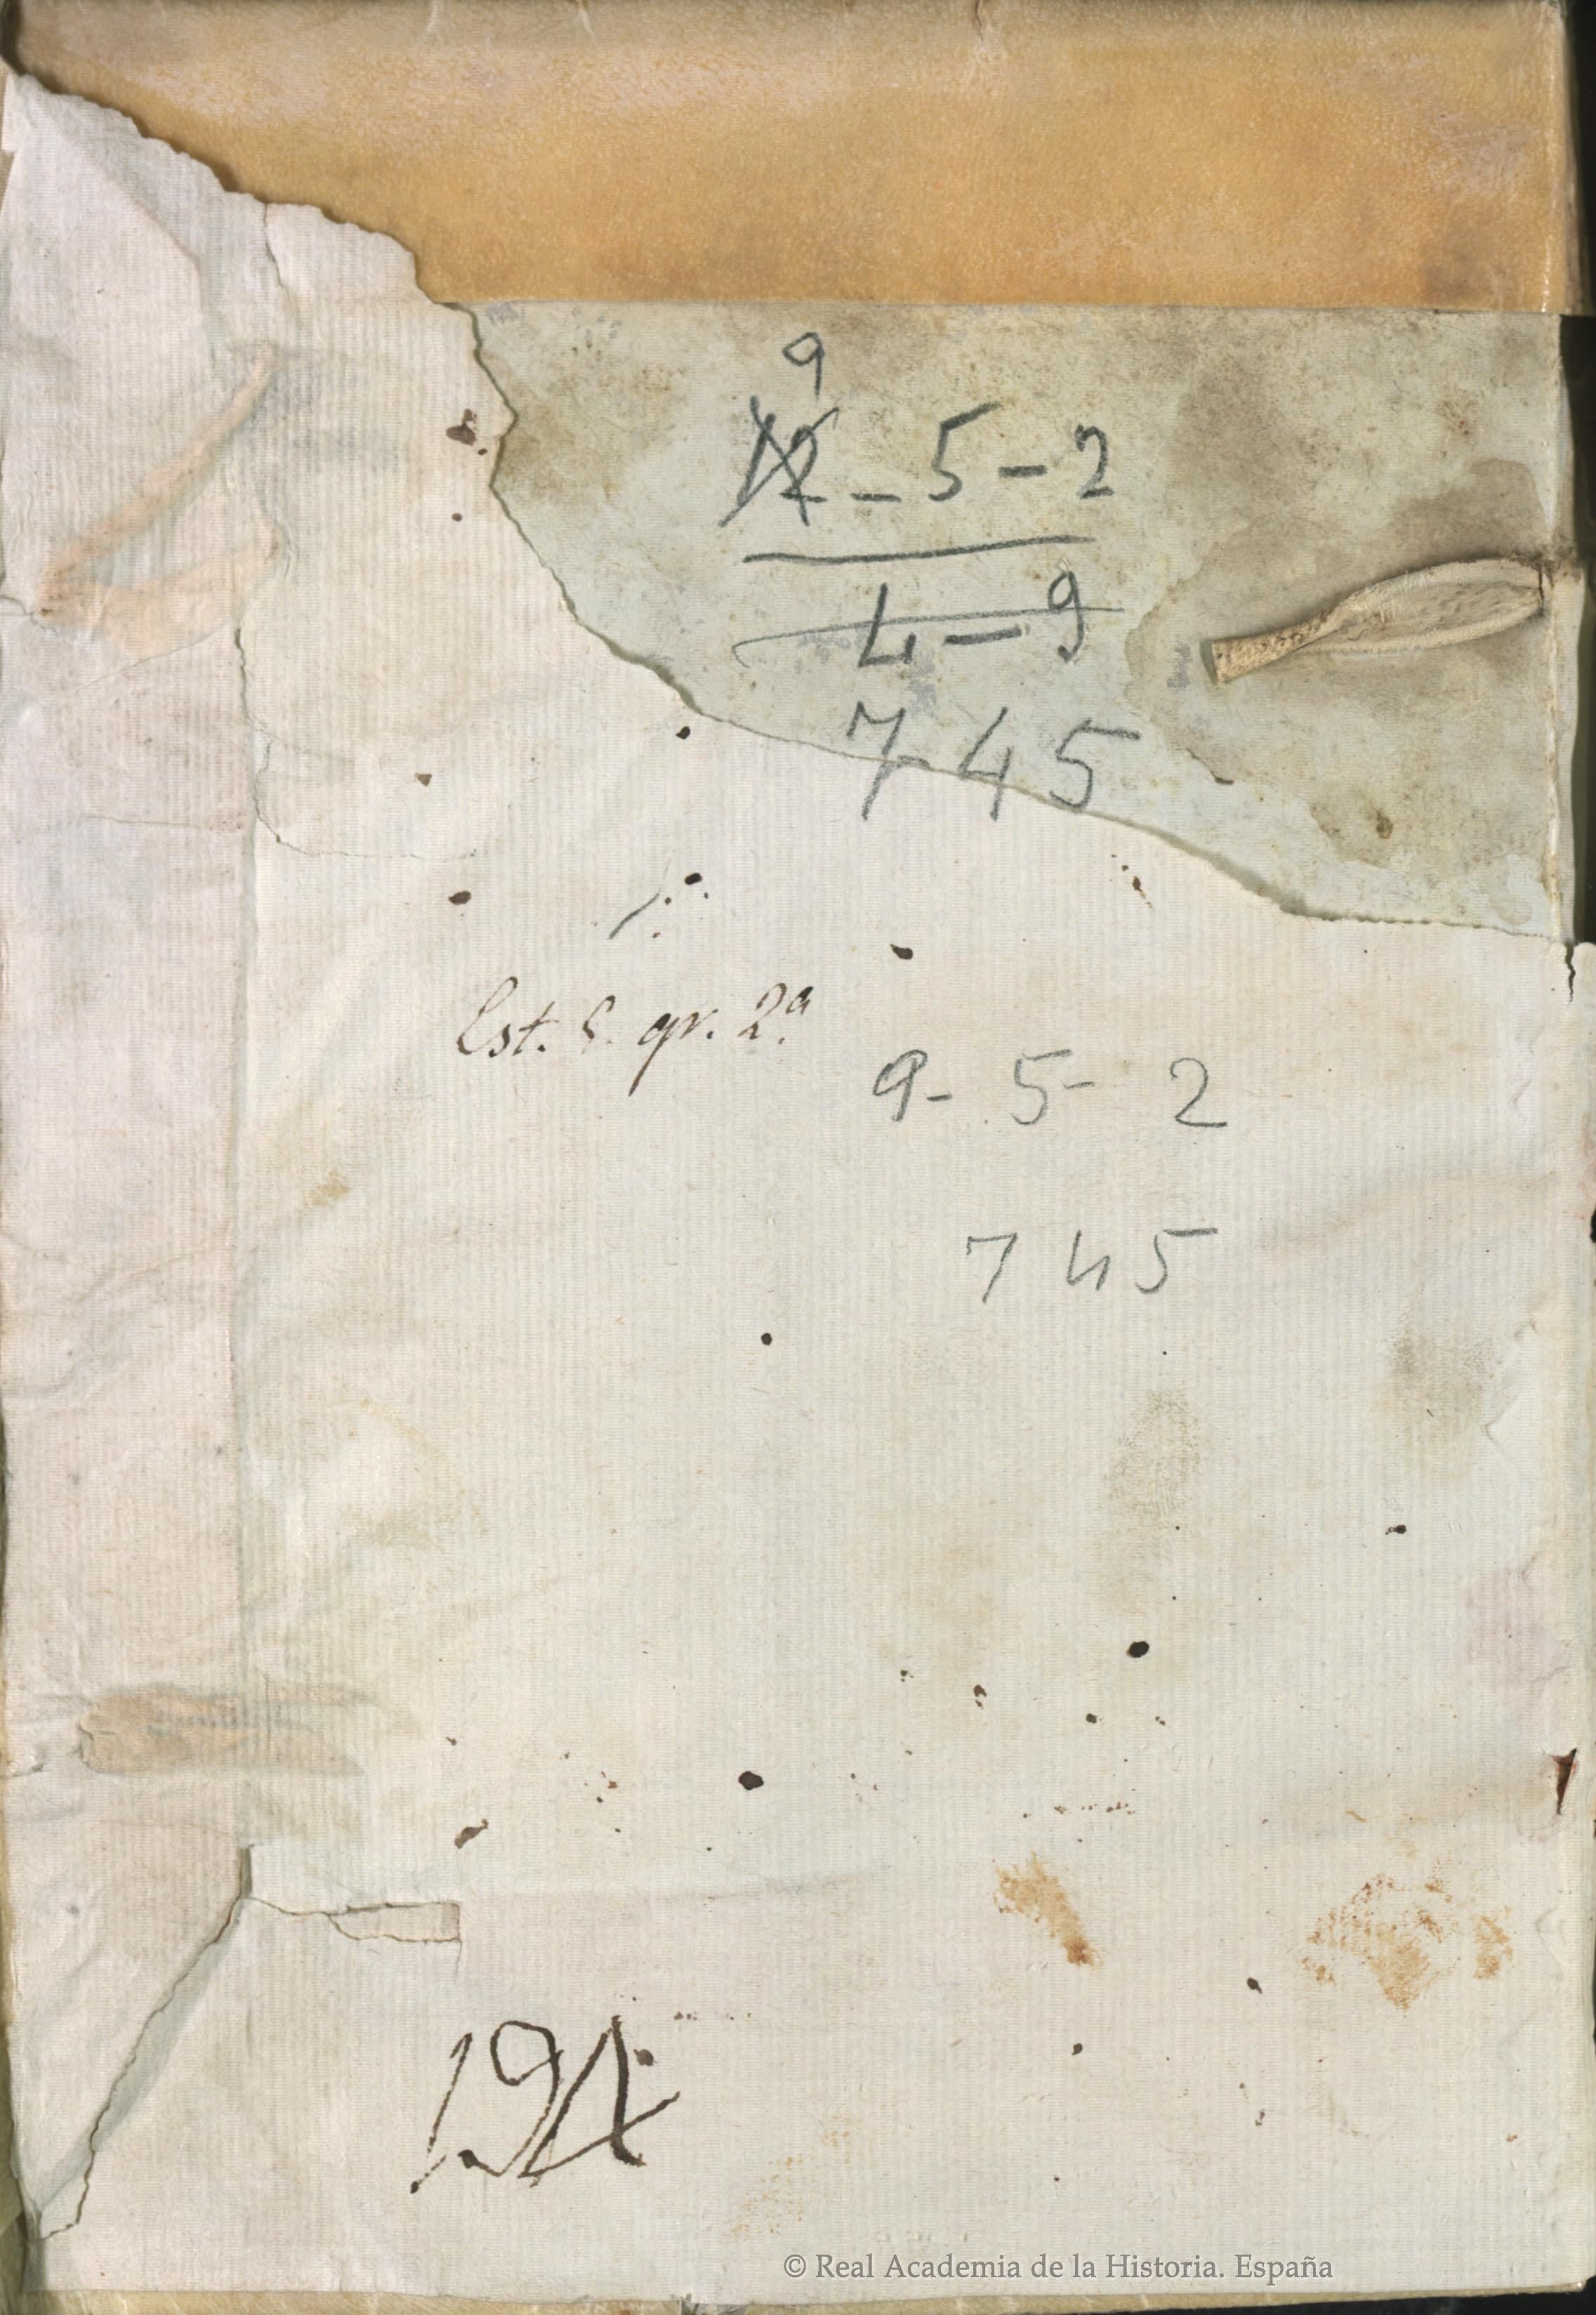 9
12 - 5 - 2
4 - 9
7 4 5
Est. 5. gr. 2ª
9 - 5 - 2
7 4 5
194
© Real Academia de la Historia. España